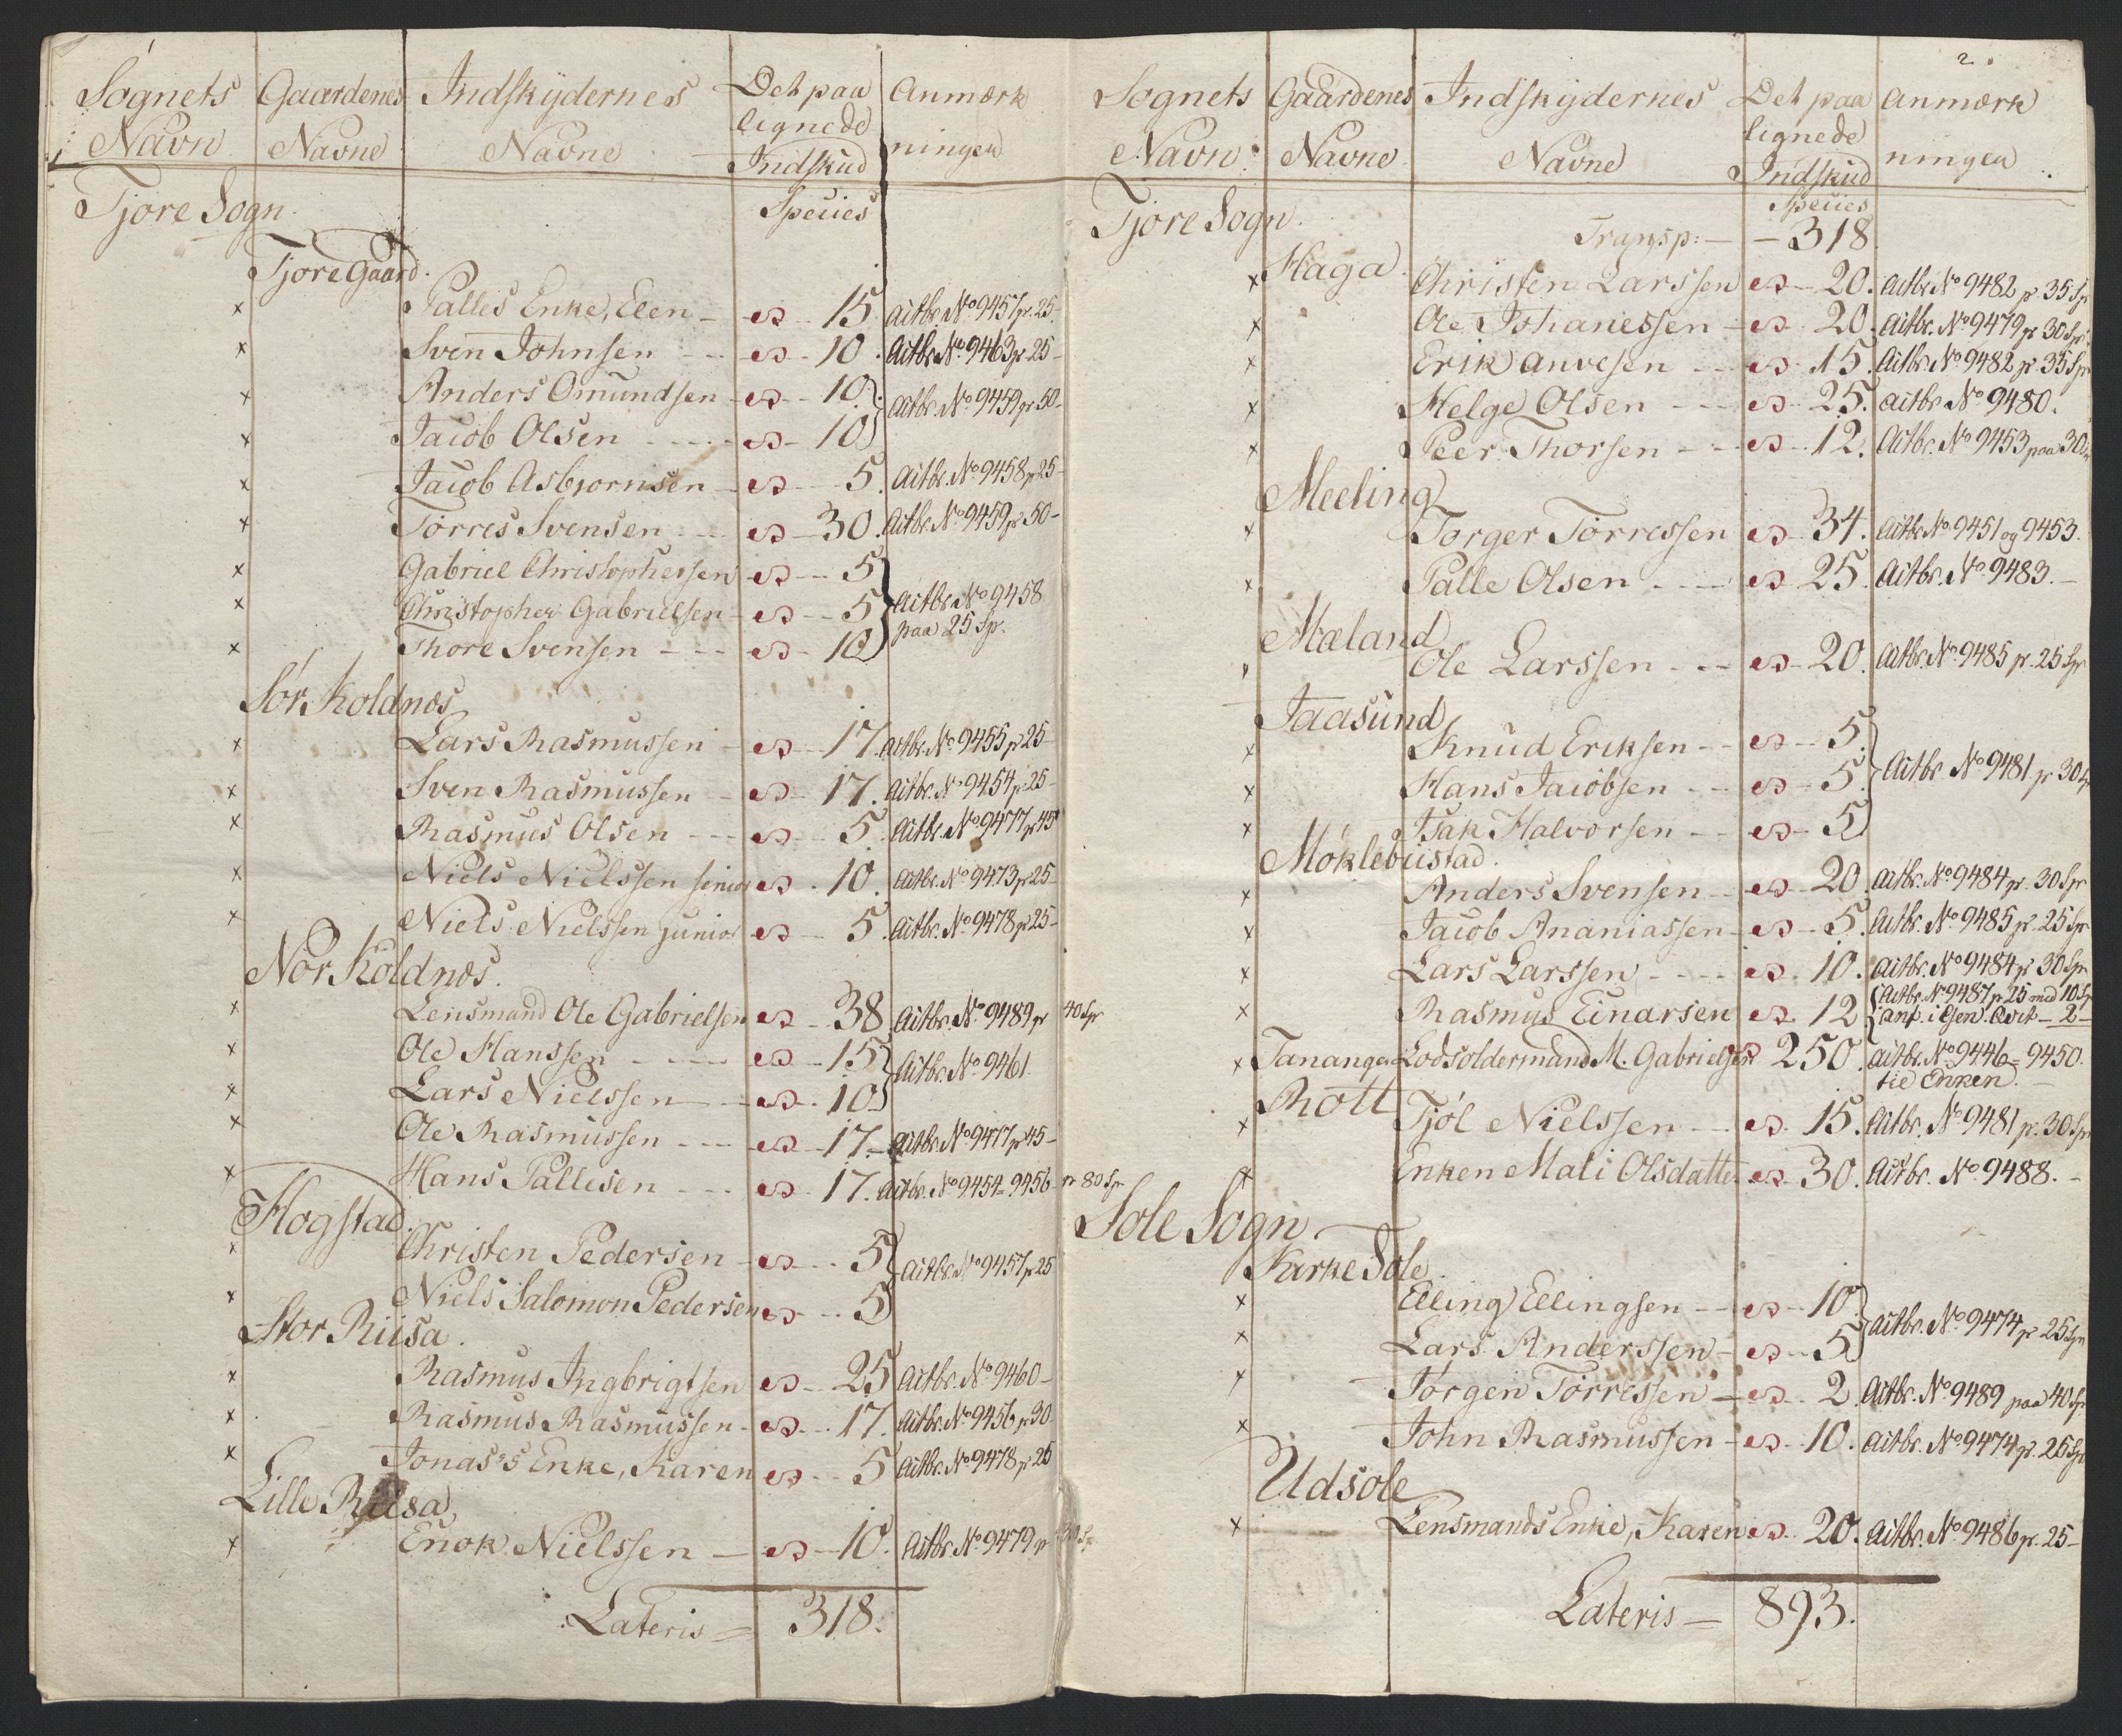 1
Sognets Navn
Gaardenes Navne
Indskydernes Navne
Det paa lignede Indskud
Anmærk ningen
Species
Tjore Sogn.
Tjore Gaard.
× Palles Enke, Elen – 15. Actbr. No 9457 pr. 25.
× Sven Johnsen – 10. Actbr. No. 9463 pr 25 –
× Anders Omundsen – 10. Actbr. No 9459 pr 50 –
× Jacob Olsen – 10
× Jacob Asbjornsen – 5. Actbr. No 9458 pr 25 –
× Törres Svensen – 30. Actbr. No 9459 pr 50 –
× Gabriel Christophersen – 5 Actbr. No 9458
× Christopher Gabrielsen – 5 paa 25 Sp.
× Thore Svensen – 10
Sör Koldnæs
× Lars Rasmussen – 17. Actbr. No 9455 pr 25 –
× Sven Rasmussen – 17. Actbr. No 9454 pr 25 –
× Rasmus Olsen – 5. Actbr. No. 9477 pr 45
× Niels Nielssen senior 10. Actbr. No 9473 pr 25 –
× Niels Nielssen junior – 5. Actbr. No 9478 pr 25 –
Nor Koldnæs.
× Lensmand Ole Gabrielsen – 38 Actbr. No. 9489 pr 40 Spr
× Ole Hanssen – 15 Actbr. No. 9461.
× Lars Nielssen – 10
× Ole Rasmussen – 17 – Actbr. No 9477 pr 45 –
× Hans Pallesen – 17. Actbr. No 9454 = 9456 pr 80 Sp
Hogstad.
× Christen Pedersen – 5 Actbr. No 9457 pr 25
× Niels Salomon Pedersen – 5
Stor Riisa.
× Rasmus Ingbrigtsen – 25 Actbr. No. 9460 –
× Rasmus Rasmussen – 17. Actbr. No 9456 pr 30 –
× Jonas's Enke, Karen – 5 Actbr. No 9478 pr 25
Lille Riisa
× Enok Nielssen – 10. Actbr. No. 9479 pr 30 Sp
Lateris = 318.
2.
Sognets Navn.
Gaardenes Navne
Indskydernes Navne
Det paa lignede Indskud
Anmærk ningen
Species
Tjore Sogn.
Transp: – – 318
Haga.
× Christen Larssen – 20. Actbr No 9482 pr 35 Sp
× Ole Johanessen – 20. Actbr. No 9479 pr 30 Spr.
× Erik Anvesen – 15. Actbr. No 9482 pr 35 Spr
× Helge Olsen – 25. Actbr No 9480.
× Peer Thorsen – 12. Actbr. No 9453 paa 30
Meeling
× Torger Törressen – 34. Actbr No 9451 og 9453.
× Palle Olsen – 25. Actbr. No. 9483. –
Mæland
Ole Larssen – 20. Actbr. No. 9485 pr 25 Spr
Jaasund
× Knud Eriksen – 5. Actbr No 9481 pr 30
× Hans Jacobsen – 5.
× Isak Halvorsen – 5
Möklebustad.
× Anders Svensen – 20 Actbr. No 9484 pr 30 Spr
× Jacob Ananiassen – 5. Actbr. No 9485 pr 25 Spr
× Lars Larssen – 10. Actbr. No 9484 pr 30 Spr
× Rasmus Einarsen 12 Actbr. No 9487 pr 25 med 10 Sp
anf. i Gjen. Qvit – 2 –
× Tananger Lodsoldermand M. Gabrielsen 250. Actbr. No 9446 = 9450.
til Enken. –
Rott
× Tjöl Nielssen – 15. Actbr. No 9481 pr 30 Spr
× Enken Mali Olsdatter 30. Actbr. No 9488. –
Sole Sogn
Kirke Sole.
× Elling Ellingsen – 10 Actbr. No 9474 pr 25 Spr
× Lars Anderssen – 5
× Jörgen Törressen – 2. Actbr. No 9489 paa 40 Sp
× John Rasmussen – 10. Actbr. No 9474 pr 25 Sp
Udsole
× Lensmands Enke, Karen 20. Actbr. No 9486 pr. 25 –
Lateris = 893.